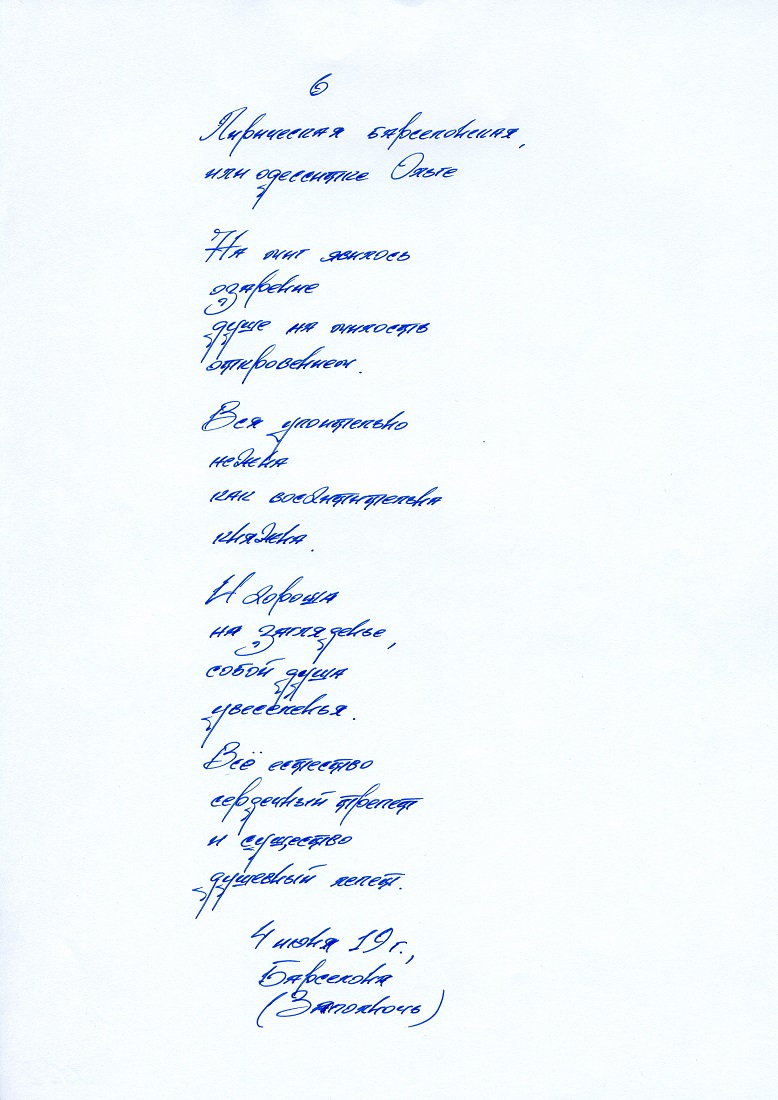 6
Лирическая барселонская,
или одесситке Ольге
На миг явилось
озаренье
душе на милость
откровеньем.
Вся упоительно
нежна
как восхитительна
княжна.
И хороша
на загляденье,
собой душа
увеселенья.
Всё естество
сердечный трепет
и существо
душевный лепет.
4 июня 19 г.,
Барселона
(Заполночь)